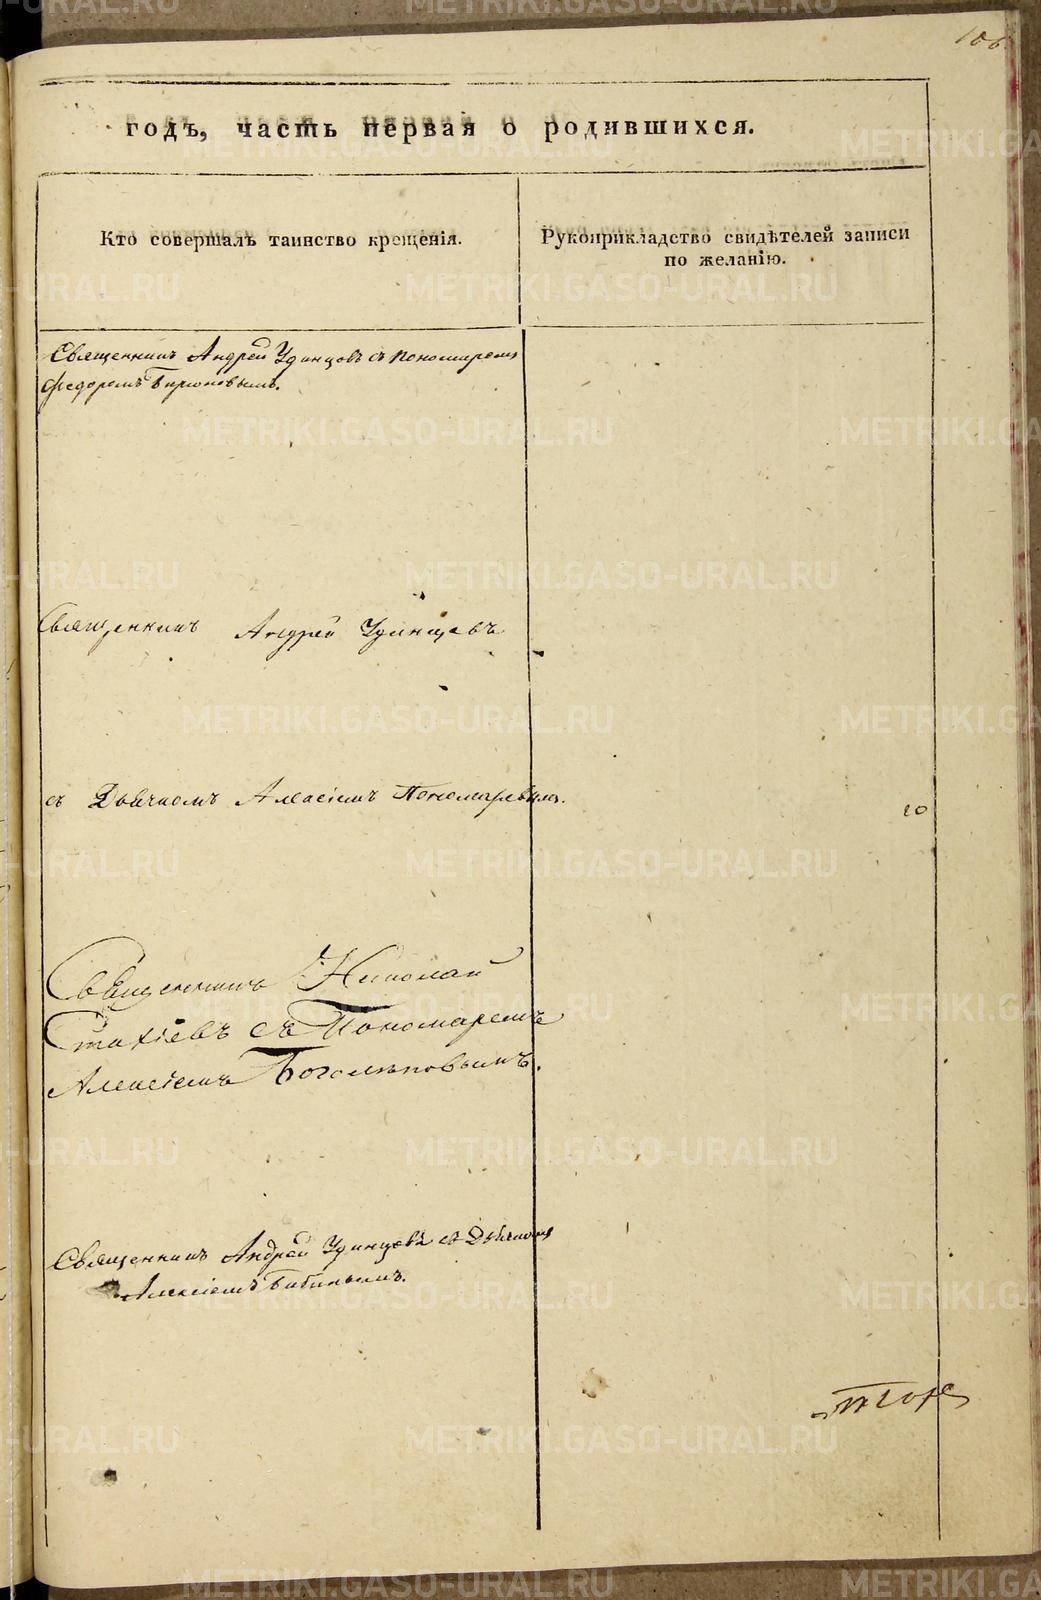 106
годъ, часть первая о родившихся.
Кто совершалъ таинство крещенія.
Рукоприкладство свидѣтелей записи
по желанію.
Священникъ Андрей Удинцовъ съ пономаремъ
Федоромъ Бирюковымъ.
Священникъ Андрей Удинцевъ
съ Дьячкомъ Алексіемъ Пономаревымъ.
Священникъ Николай
Стахіевъ съ Пономаремъ
Алексіемъ Боголѣповымъ.
Священникъ Андрей Удинцовъ съ Дьячкомъ
Алексіемъ Бабинымъ.
METRIKI.GASO-URAL.RU